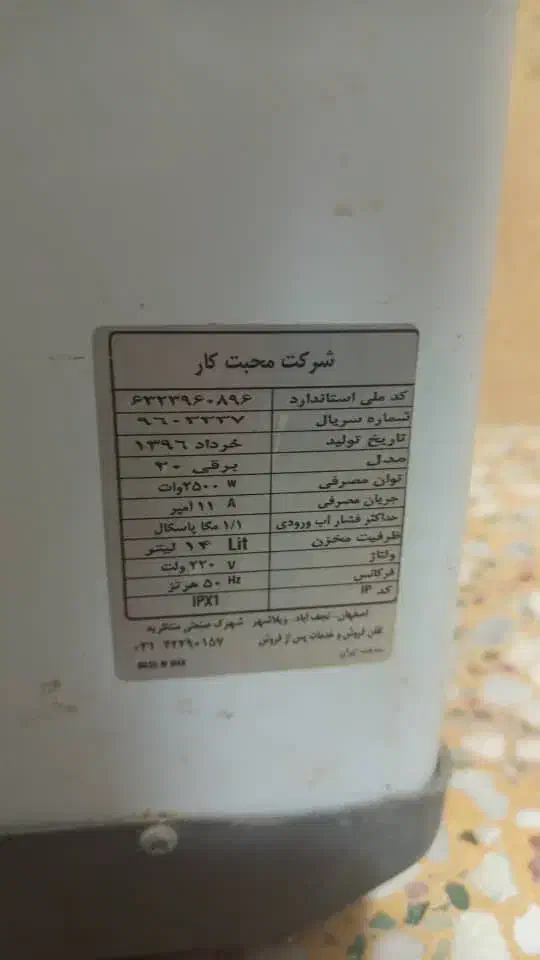 شرکت محبت کار
کد ملی استاندارد ۶۳۲۳۹۶۰۸۹۶
شماره سریال ۹۶-۲۲۳۷
تاریخ تولید خرداد ۱۳۹۶
مدل برقی ۲۰
توان مصرفی ۲۵۰۰وات W
جریان مصرفی ۱۱ آمپر A
حداکثر فشار آب ورودی ۱/۱ مگا پاسکال
ظرفیت مخزن ۱۴ لیتر Lit
ولتاژ ۲۲۰ ولت V
فرکانس ۵۰ هرتز Hz
کد IP IPX1
اصفهان - نجف آباد - ویلاشهر شهرک صنعتی منتظریه
تلفن فروش و خدمات پس از فروش
۰۳۱ ۴۲۲۹۰۱۵۷
ساخت ایران
MADE IN IRAN